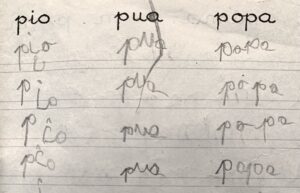 pio pua popa
pio pua popa
pio pua popa
pio pua po-pa
pio pua papa